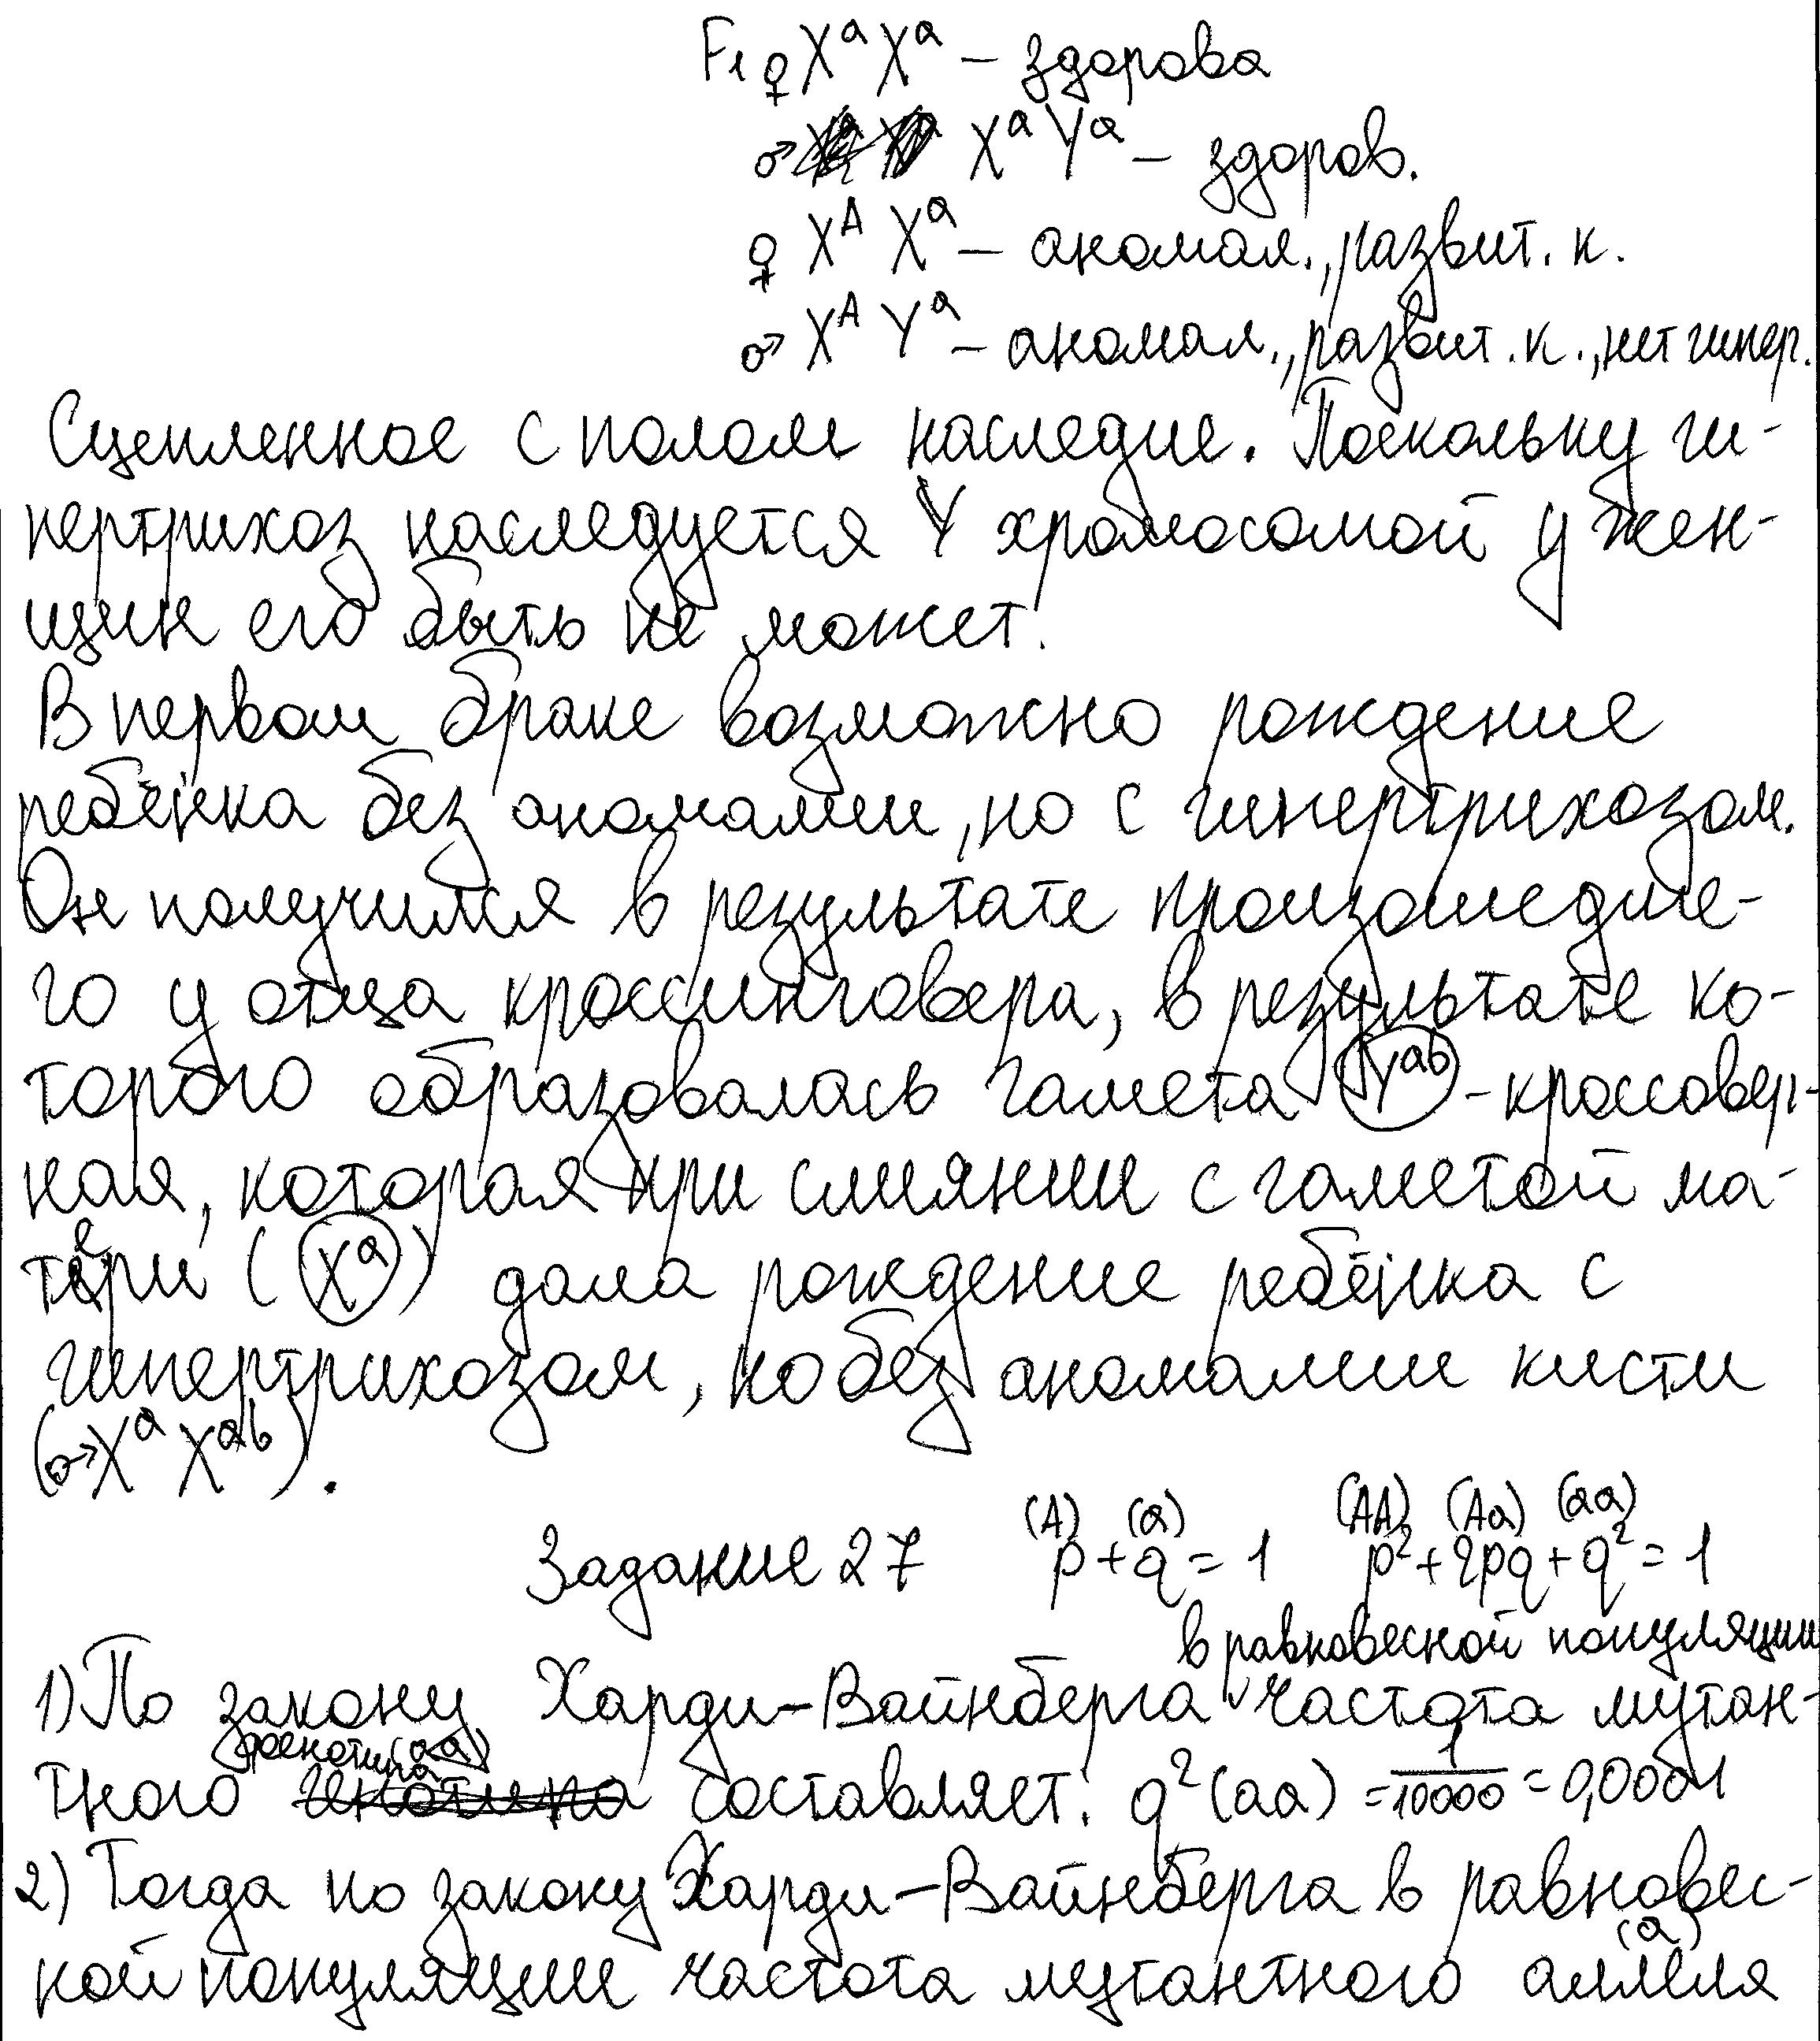 F₁ ♀ Xᵃ Xᵃ – здорова
♂ Xᵃ Yᵃ – здоров.
♀ Xᴬ Xᵃ – аномал., развит. к.
♂ Xᴬ Yᵃ – аномал., развит. к., нет гипер.
Сцепленное с полом наследие. Поскольку ги-
пертрихоз наследуется Y хромосомой у жен-
щин его быть не может.
В первом браке возможно рождение
ребёнка без аномалии, но с гипертрихозом.
Он получился в результате произошедше-
го у отца кроссинговера, в результате ко-
торого образовалась гамета Yᵃᵇ - кроссовер-
ная, которая при слиянии с гаметой ма-
тери (Xᵃ) дала рождение ребёнка с
гипертрихозом, но без аномалии кисти
(♂ Xᵃ Xᵃᵇ).
(A) (a) (AA) (Aa) (aa)
Задание 27 p + q = 1 p² + 2pq + q² = 1
в равновесной популяции
1) По закону Харди–Вайнберга частота мутан-
фенотипа (aa)
тного генотипа составляет: q² (aa) = 1/10000 = 0,0001
2) Тогда по закону Харди–Вайнберга в равновес-
(a)
ной популяции частота мутантного аллеля